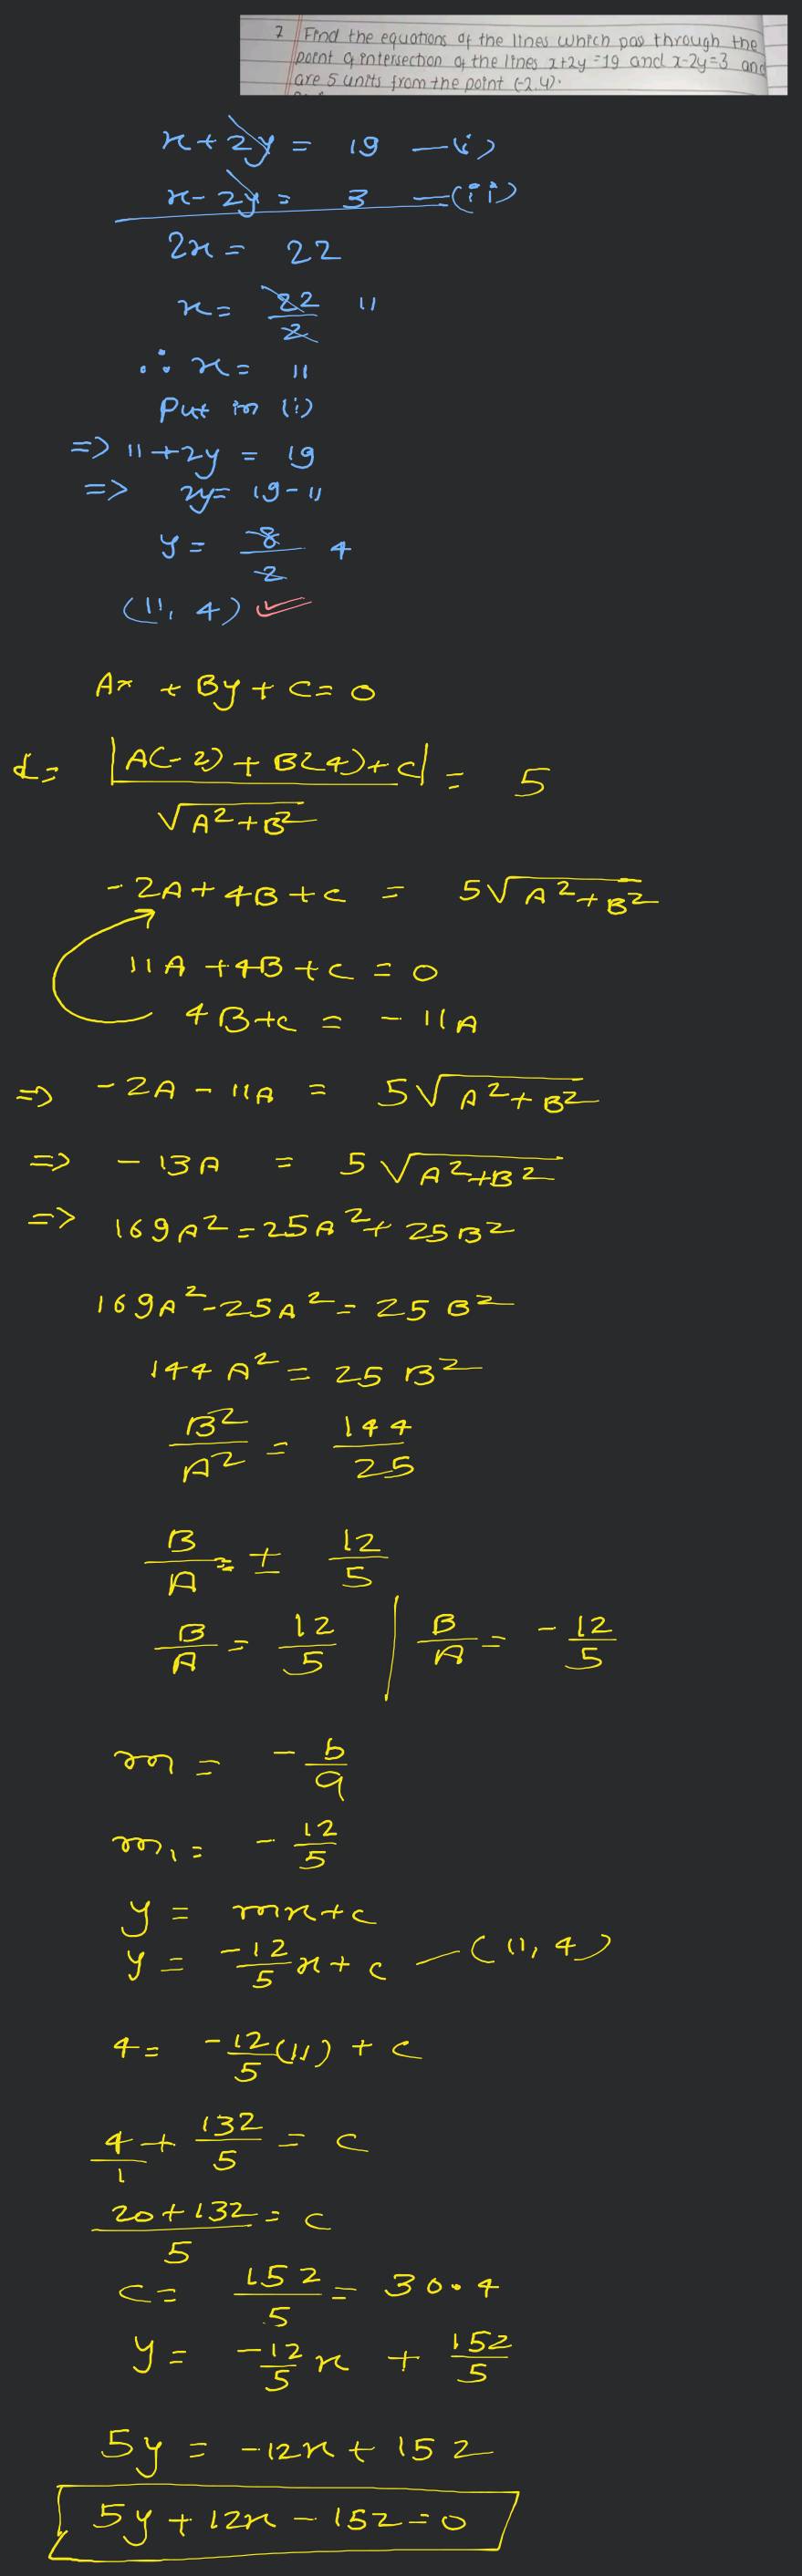 7 Find the equations of the lines which pas through the
point of intersection of the lines x+2y=19 and x-2y=3 and
are 5 units from the point (-2,4).
x + 2y = 19 —(i)
x - 2y = 3 —(ii)
2x = 22
x = 22/2 11
∴ x = 11
Put in (i)
=> 11 + 2y = 19
=> 2y = 19 - 11
y = 8/2 4
(11, 4) ✓
Ax + By + C = 0
d = |A(-2) + B(4) + C| / √A²+B² = 5
-2A + 4B + C = 5√A²+B²
11A + 4B + C = 0
4B + C = -11A
=> -2A - 11A = 5√A²+B²
=> -13A = 5√A²+B²
=> 169A² = 25A² + 25B²
169A² - 25A² = 25B²
144A² = 25B²
B²/A² = 144/25
B/A = ± 12/5
B/A = 12/5 | B/A = -12/5
m = -b/a
m₁ = -12/5
y = mx + c
y = -12/5 x + c —(11, 4)
4 = -12/5 (11) + c
4/1 + 132/5 = c
20+132/5 = c
c = 152/5 = 30.4
y = -12/5 x + 152/5
5y = -12x + 152
5y + 12x - 152 = 0